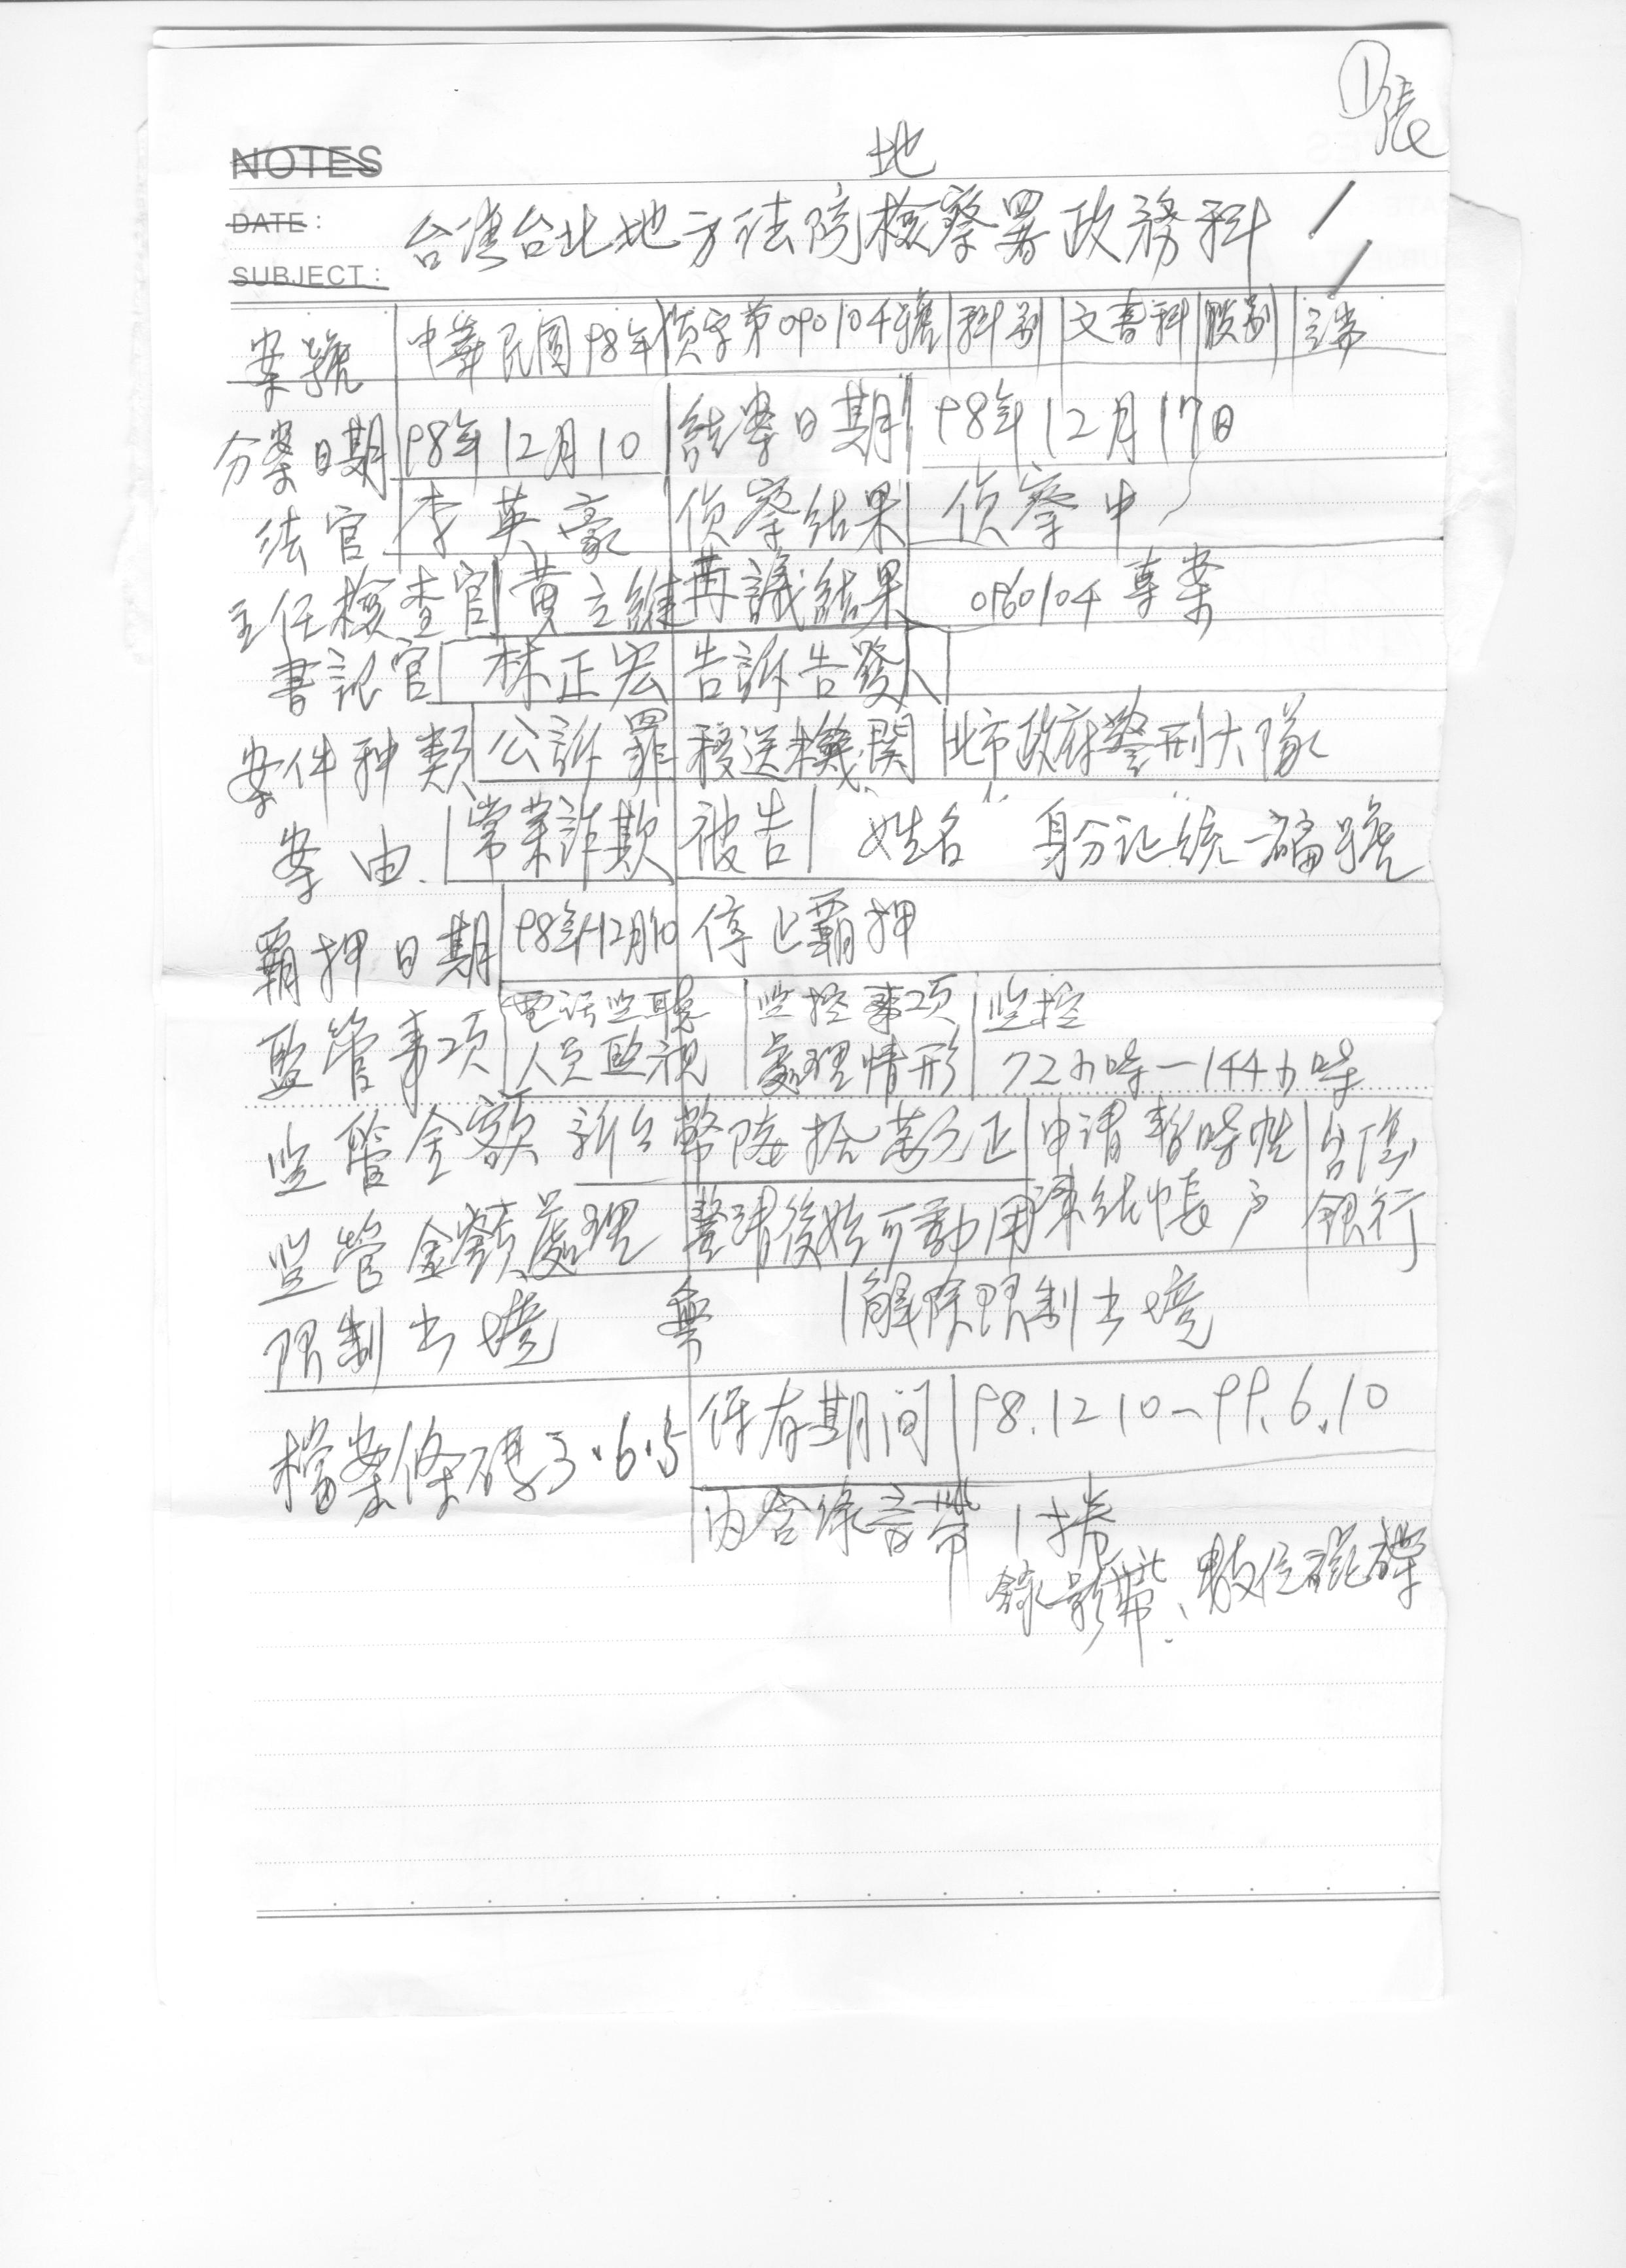 ①張
NOTES
地
DATE:
台灣台北地方法院檢察署政務科
SUBJECT:
案號 中華民國98年偵字第090104號 科別 文書科 股別
分案日期 98年12月10 結案日期 98年12月17日
法官 李英豪 偵察結果 偵察中
主任檢查官 黃立維 再議結果 0960104專案
書記官 林正宏 告訴告發人
案件种類 公訴罪 移送機関 北市政府警刑大隊
案由 常業詐欺 被告 姓名 身分证統一編號
覊押日期 98年12月10 停止覊押
監管事項 電话监聽 监控事項 监控
人员監視 處理情形 72小時一144小時
监管金額 新台幣陸拾萬元正 申请暫時性 台灣
监管金額處理 整清後始可動用 凍結帳户 銀行
限制出境 無 解除限制出境
檔案條碼 3.6.5 保存期间 98.12 10~99.6.10
內含錄音帶 1捲
錄影帶、數位磁碟